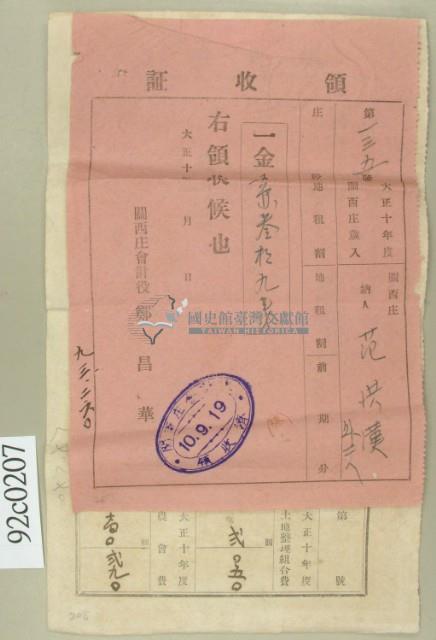 領收証
第一三五號
大正十年度
關西庄歲入
關西庄
納人 范洪漢
外三人
庄稅地租割
地租割前期分
一金
參拾九
右領收候也
大正十年 月 日
關西庄會計役 鄭昌華
10.9.19
領收濟
國史館臺灣文獻館
TAIWAN HISTORICA
九三、二六〇
第 號
大正十年度
土地整理組合費
貳〇五〇
大正十年度
農會費
貳九〇
92c0207
208